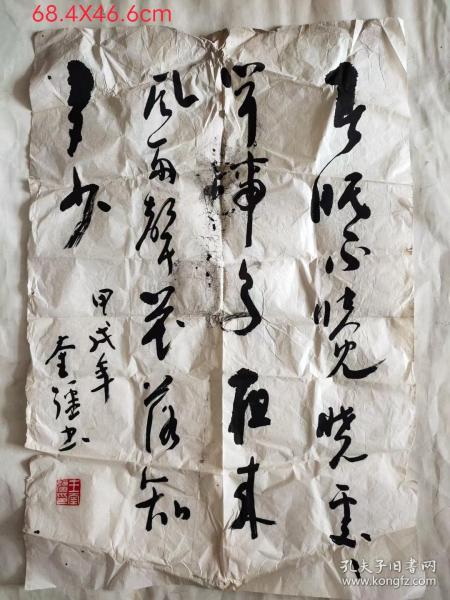 68.4X46.6cm
春眠不觉晓处处
闻啼鸟夜来
风雨声花落知
多少
甲戌年
奎强书
孔夫子旧书网
www.kongfz.com